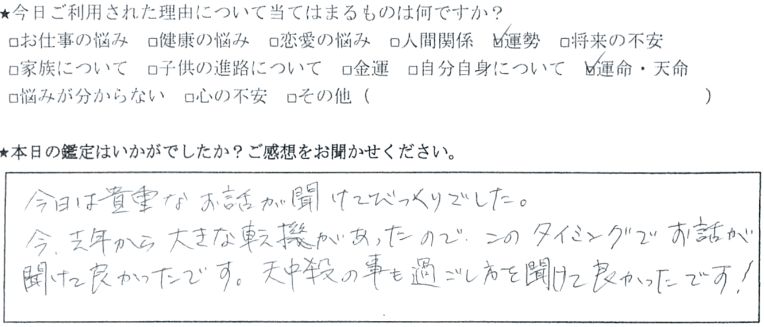 ★今日ご利用された理由について当てはまるものは何ですか？
□お仕事の悩み □健康の悩み □恋愛の悩み □人間関係 ☑運勢 □将来の不安
□家族について □子供の進路について □金運 □自分自身について ☑運命・天命
□悩みが分からない □心の不安 □その他（ ）
★本日の鑑定はいかがでしたか？ご感想をお聞かせください。
今日は貴重なお話が聞けてびっくりでした。
今、去年から大きな転機があったので、このタイミングでお話が
聞けて良かったです。天中殺の事も過ごし方を聞けて良かったです！